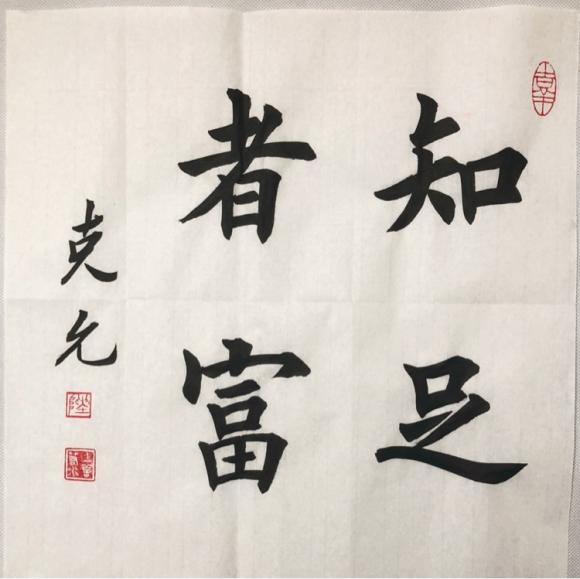 知足
者富
克允